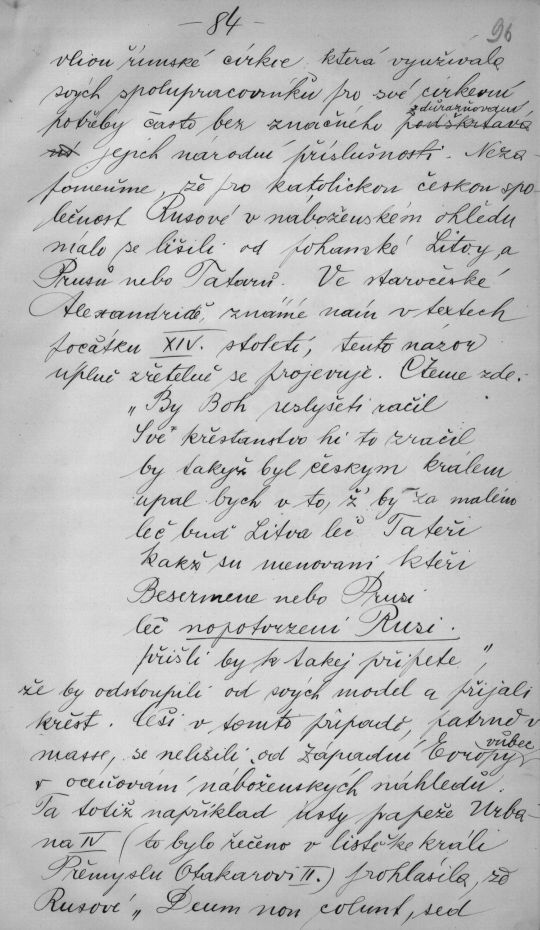 — 84 —
96
vlivu římské církve která využívala
svých spolupracovníků pro své církevní
zdůrazňování
potřeby často bez značného podškrtává
ní jejich národní příslušnosti. Neza
pomeňme, že pro katolickou českou spo
lečnost Rusové v náboženském ohledu
málo se lišili od pohanské Litvy, a
Prusů nebo Tatarů. Ve staročeské
Alexandridě, známé nám v textech
počátku XIV. století, tento názor
uplně zřetelně se projevuje. Čteme zde:
„By Boh uslyšeti ráčil
Své křestanstvo hi to zračil
by takýž byl českym králem
upal bych v to, ž' by za malém
leč buď Litva leč Tateři
kakž su menovani kteři
Besermene nebo Prusi
leč nepotvrzení Rusi.
přišli by k takej připete",
že by odstoupili od svých model a přijali
křest. Češi v tomto případě, patrně v
masse, se nelišili od západní Evropy vůbec
v oceňování náboženských náhledů.
Ta totiž například usty papeže Urba-
na IV (to bylo řečeno v listě ke králi
Přemyslu Otakarovi II.) prohlásila, že
Rusové „Deum non colunt, sed